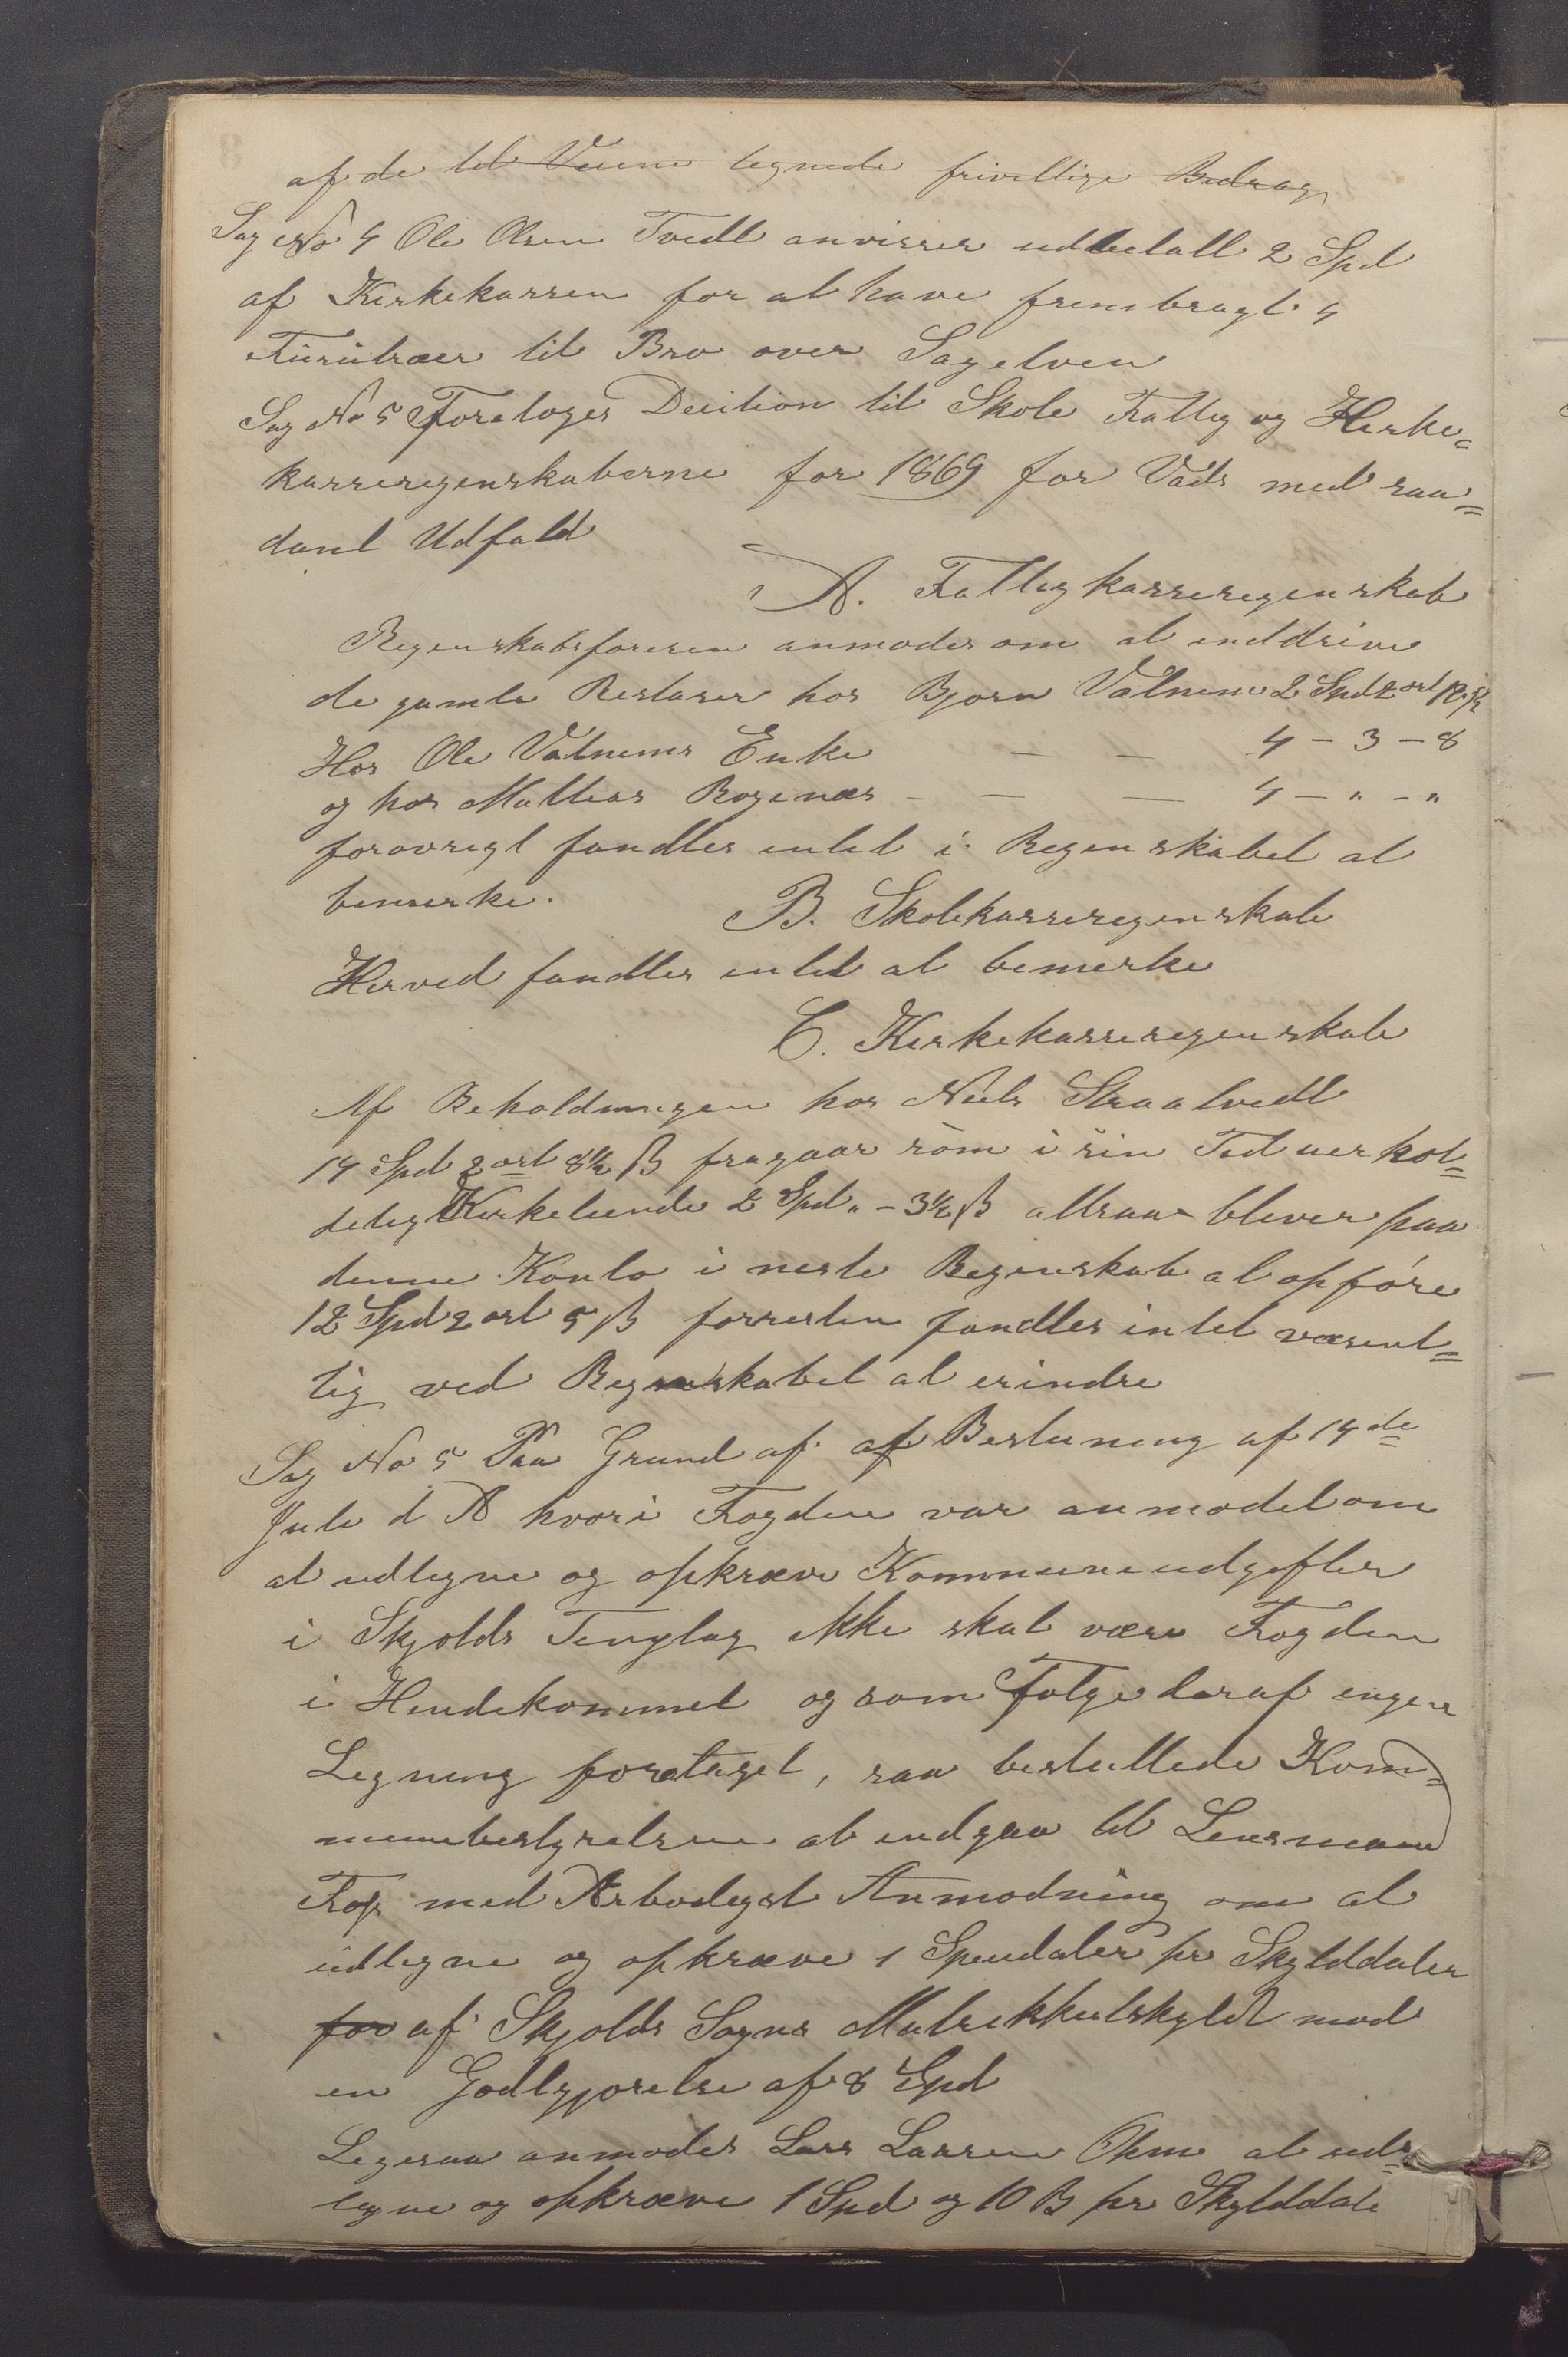 af de til Veiene tegnede frivillige Bedrag
Sag No 4 Ole Olsen Tvedt anvisses udbetalt 2 Spd
af Kirkekassen for at have frembragt 4
Furutræer til Bro over Sagelven
Sag No 5 Foretoges Decition til Skole Fattig og Kirke=
kasseregenskaberne for 1869 for Vads med saa=
dant Udfald
A. Fattigkasseregenskab
Regenskabsføreren anmodes om at inddrive
de gamle Restaser hos Bjørn Vatnem 2 Spd 2 ort 12 ß
Hos Ole Vatnems Enke — — 4 – 3 – 8
og hos Mathias Rogenæs – — — 4 – " – "
forøvrigt fandtes intet i Regenskabet at
bemerke.
B. Skolekasseregenskab
Herved fandtes intet at bemerke
C. Kirkekasseregenskab
Af Beholdningen hos Niels Straatvedt
14 Spd 2 ort 8½ ß fragaar som i sin Tid uerhol=
delig Kirketiende 2 Spd " – 3½ ß altsaa bliver paa
denne Konto i neste Regenskab at opføre
12 Spd 2 ort 5 ß forresten fandtes intet væsent=
lig ved Regnskabet at erindre
Sag No 5 Paa Grund af af Beslutning af 14de
Juli d A hvori Fogden var anmodet om
at udligne og opkræve Kommuneudgifter
i Skjolds Tinglag ikke skal være Fogden
i Hendekommet og som Følge deraf ingen
Ligning foretaget, saa besluttede Kom=
munebestyrelsen at indgaa til Lensmann
med Ærbødigst Anmodning om at
udligne og opkræve 1 Speudaler pr Skylddaler
for af Skjolds Sogns Matrikkulskyld mod
en Godtgjørelse af 8 Spd
Ligesaa anmodes Lars Larsen Ohm at ud=
ligne og opkræve 1 Spd og 10 ß pr Skylddale